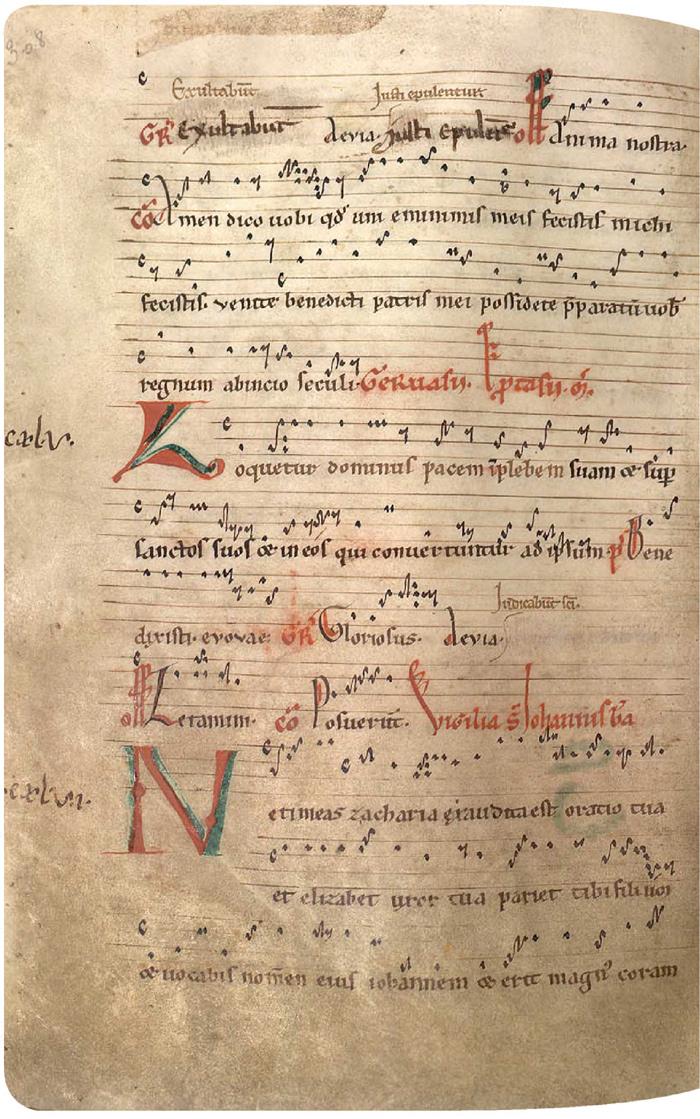 308
Exultabūt Justi epulentur
GR Exultabunt devia. Justi Epulēt off Anima nostra.
cō Amen dico uobis qđ uni eminimis meis fecistis michi
fecistis. venite benedicti patris mei possidete p̄paratū uob
regnum abinicio seculi. Geruasii. Protasii. m̄.
cxlv.
Loquetur dominus pacem īplebem suam & sup
sanctos suos & in eos qui conuertuntur ad ipsum. p̄ Bene
Judicabūt sc̄i.
dixisti. evovae. GR Gloriosus. devia.
off Letamini. cō Posuerūt. Vigilia s̄ Iohannis ba
cxlvi.
Ne timeas zacharia exaudita est oratio tua
et elizabet uxor tua pariet tibi filium
& uocabis nomen eius iohannem & erit magn' coram